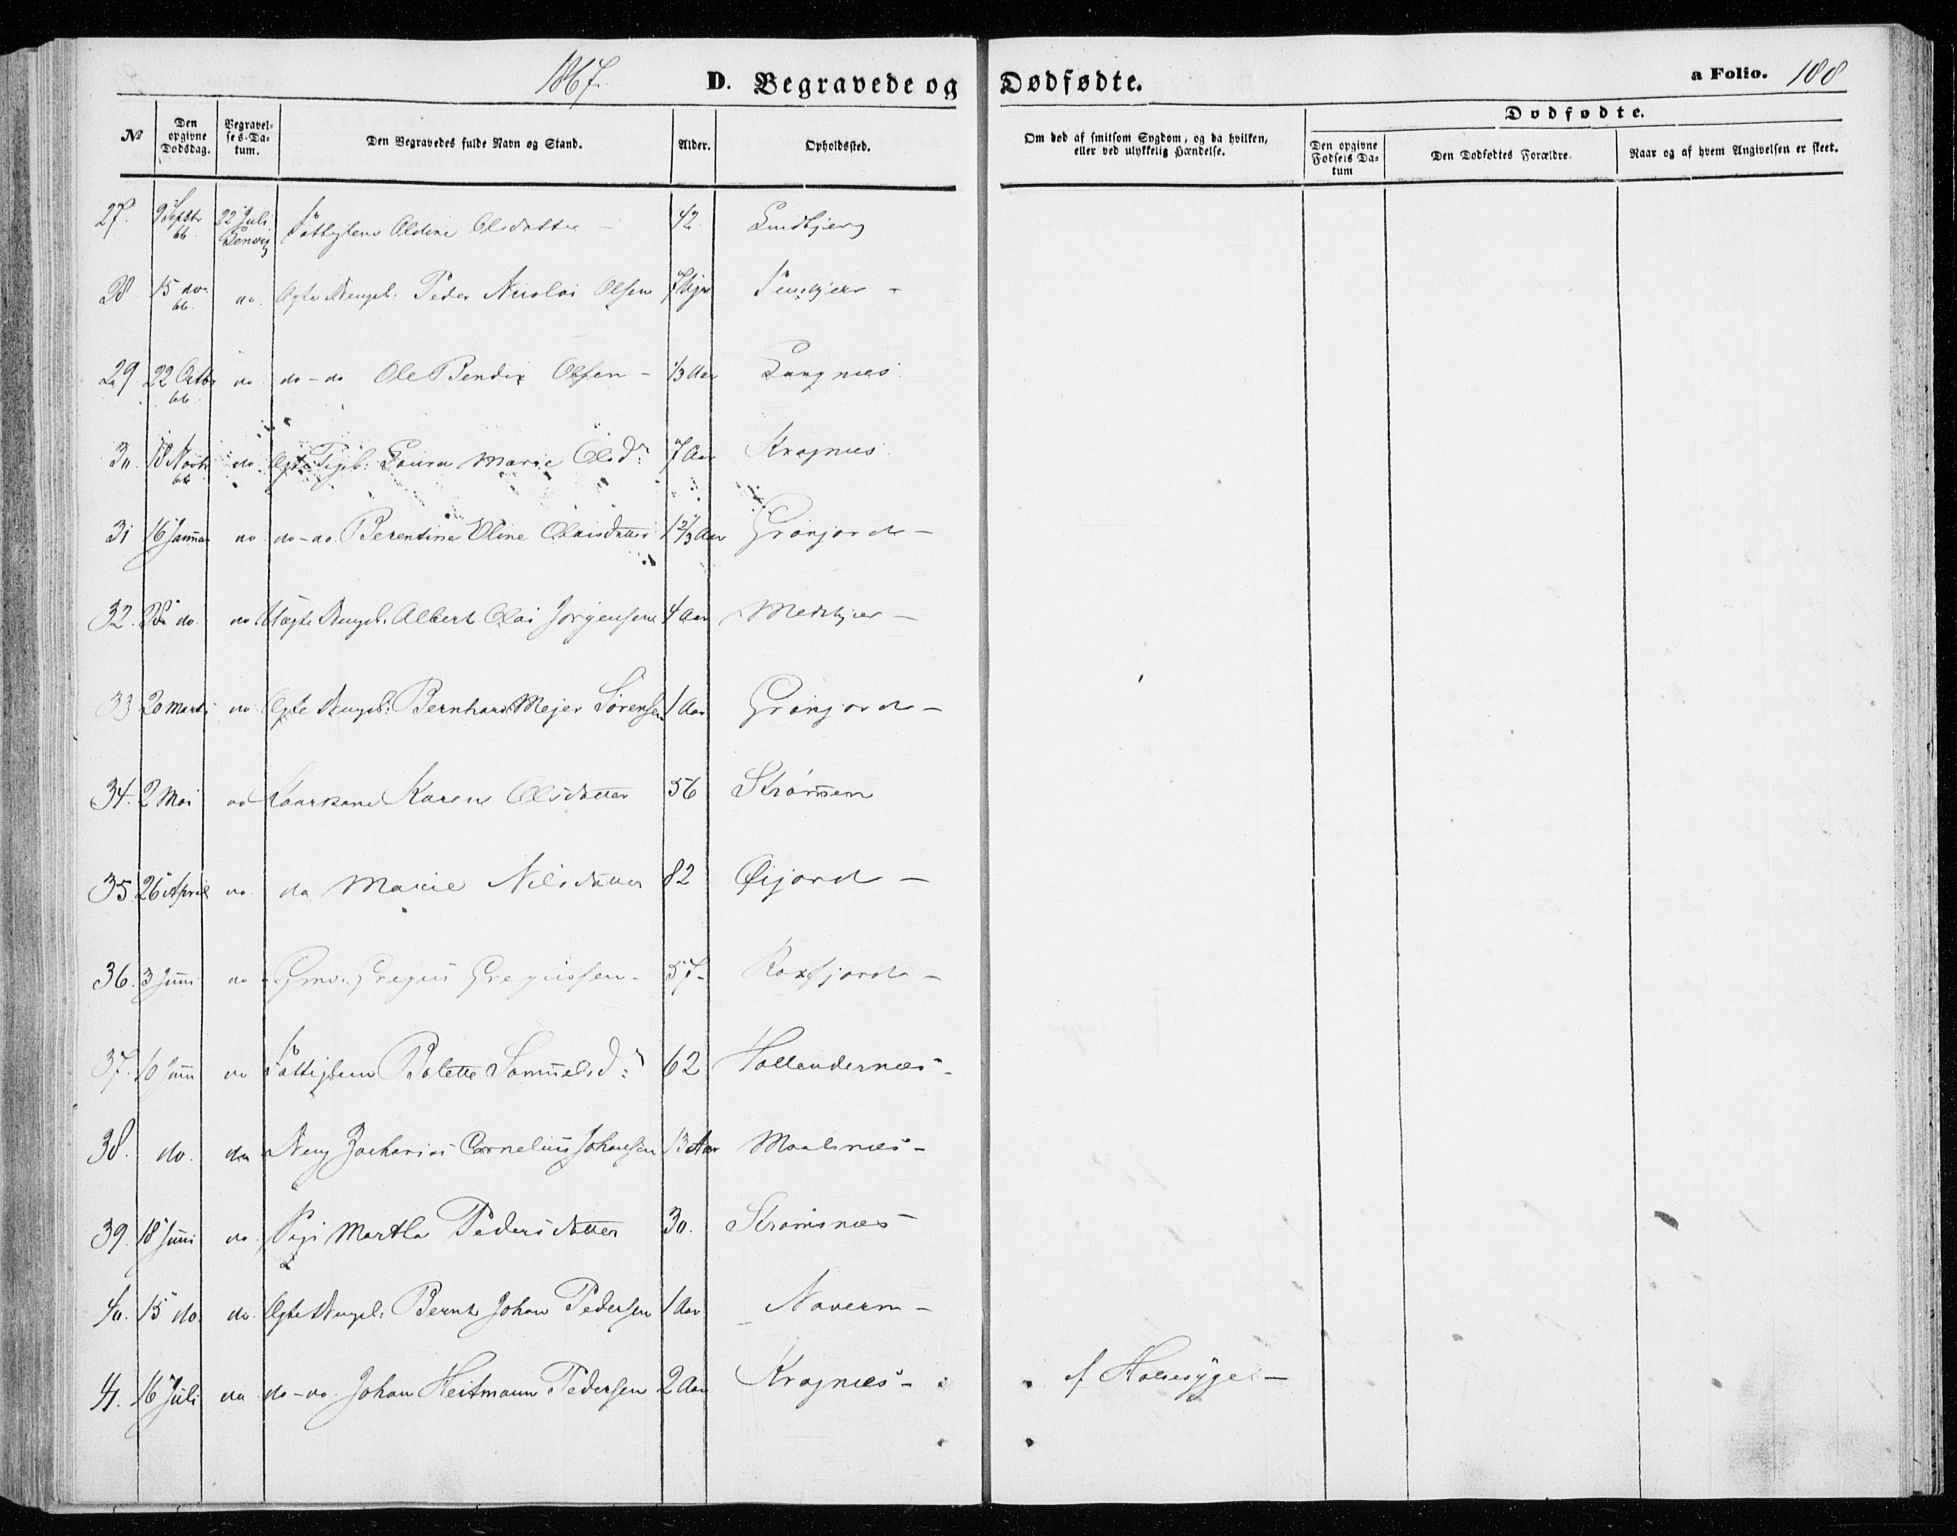 1867.
D. Begravede og Dødfødte.
a Folio. 188
Dødfødte.
№ Den opgivne Dødsdag. Begravelses-Datum. Den Begravedes fulde Navn og Stand. Alder. Opholdssted. Om død af smitsom Sygdom, og da hvilken, eller ved ulykkelig Hændelse. Den opgivne Fødsels Datum Den Dødfødtes Forældre. Naar og af hvem Angivelsen er skeet.
27. 9 Septbr 66. 22 Juli Lenvig Fattiglem Aldine Olsdatter - 42. Lindbjerg
28 15 do 66. do. Ægte Drengeb: Peder Nicolai Olsen
29 22 Octbr 66. do do-do Ole Bendix Olsen - 1/3 Aar Langnæs
30. 18 Novbr 66 do Ægte Pigeb: Laura Marie Olsd: 7 Aar Kragnæs
31 16 Januar do do-do. Berentine Eline Olaisdatter 1 2/3 Aar Grønjord -
32. 28 do. do Uægte Drengeb. Albert Olai Jørgensen 4 Aar Medbyer -
33 20 Marts do Ægte Drengeb: Bernhard Mejer Sørensen 1 Aar Grønjord -
34. 2 Mai do Kaarkone Karen Olsdatter 56 Strømmen
35 26 April do. do Marie Nilsdatter 82 Øijord -
36. 3 Juni do Grmd. Gregus Gregussen - 57- Roxfjord -
37. 10 Juni do Fattiglem Bolette Samuelsd: 62 Hollendernæs -
38. do. do Dreng Zacharias Cornelius Johansen 13 Aar Maalsnæs -
39. 18 Juni do. Pige Martha Pedersdatter 30. Strømsnæs -
40. 15 do. do. Ægte Drengeb: Bernt Johan Pedersen 1 Aar Naveren -
41. 16 Juli do do-do. Johan Heitmann Pedersen 2 Aar Kragnæs - af Halssyge -